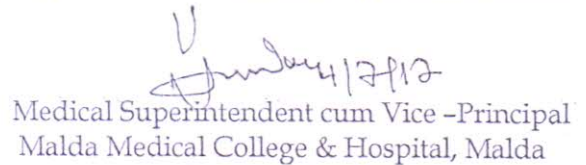 4/7/17
Medical Superintendent cum Vice –Principal
Malda Medical College & Hospital, Malda